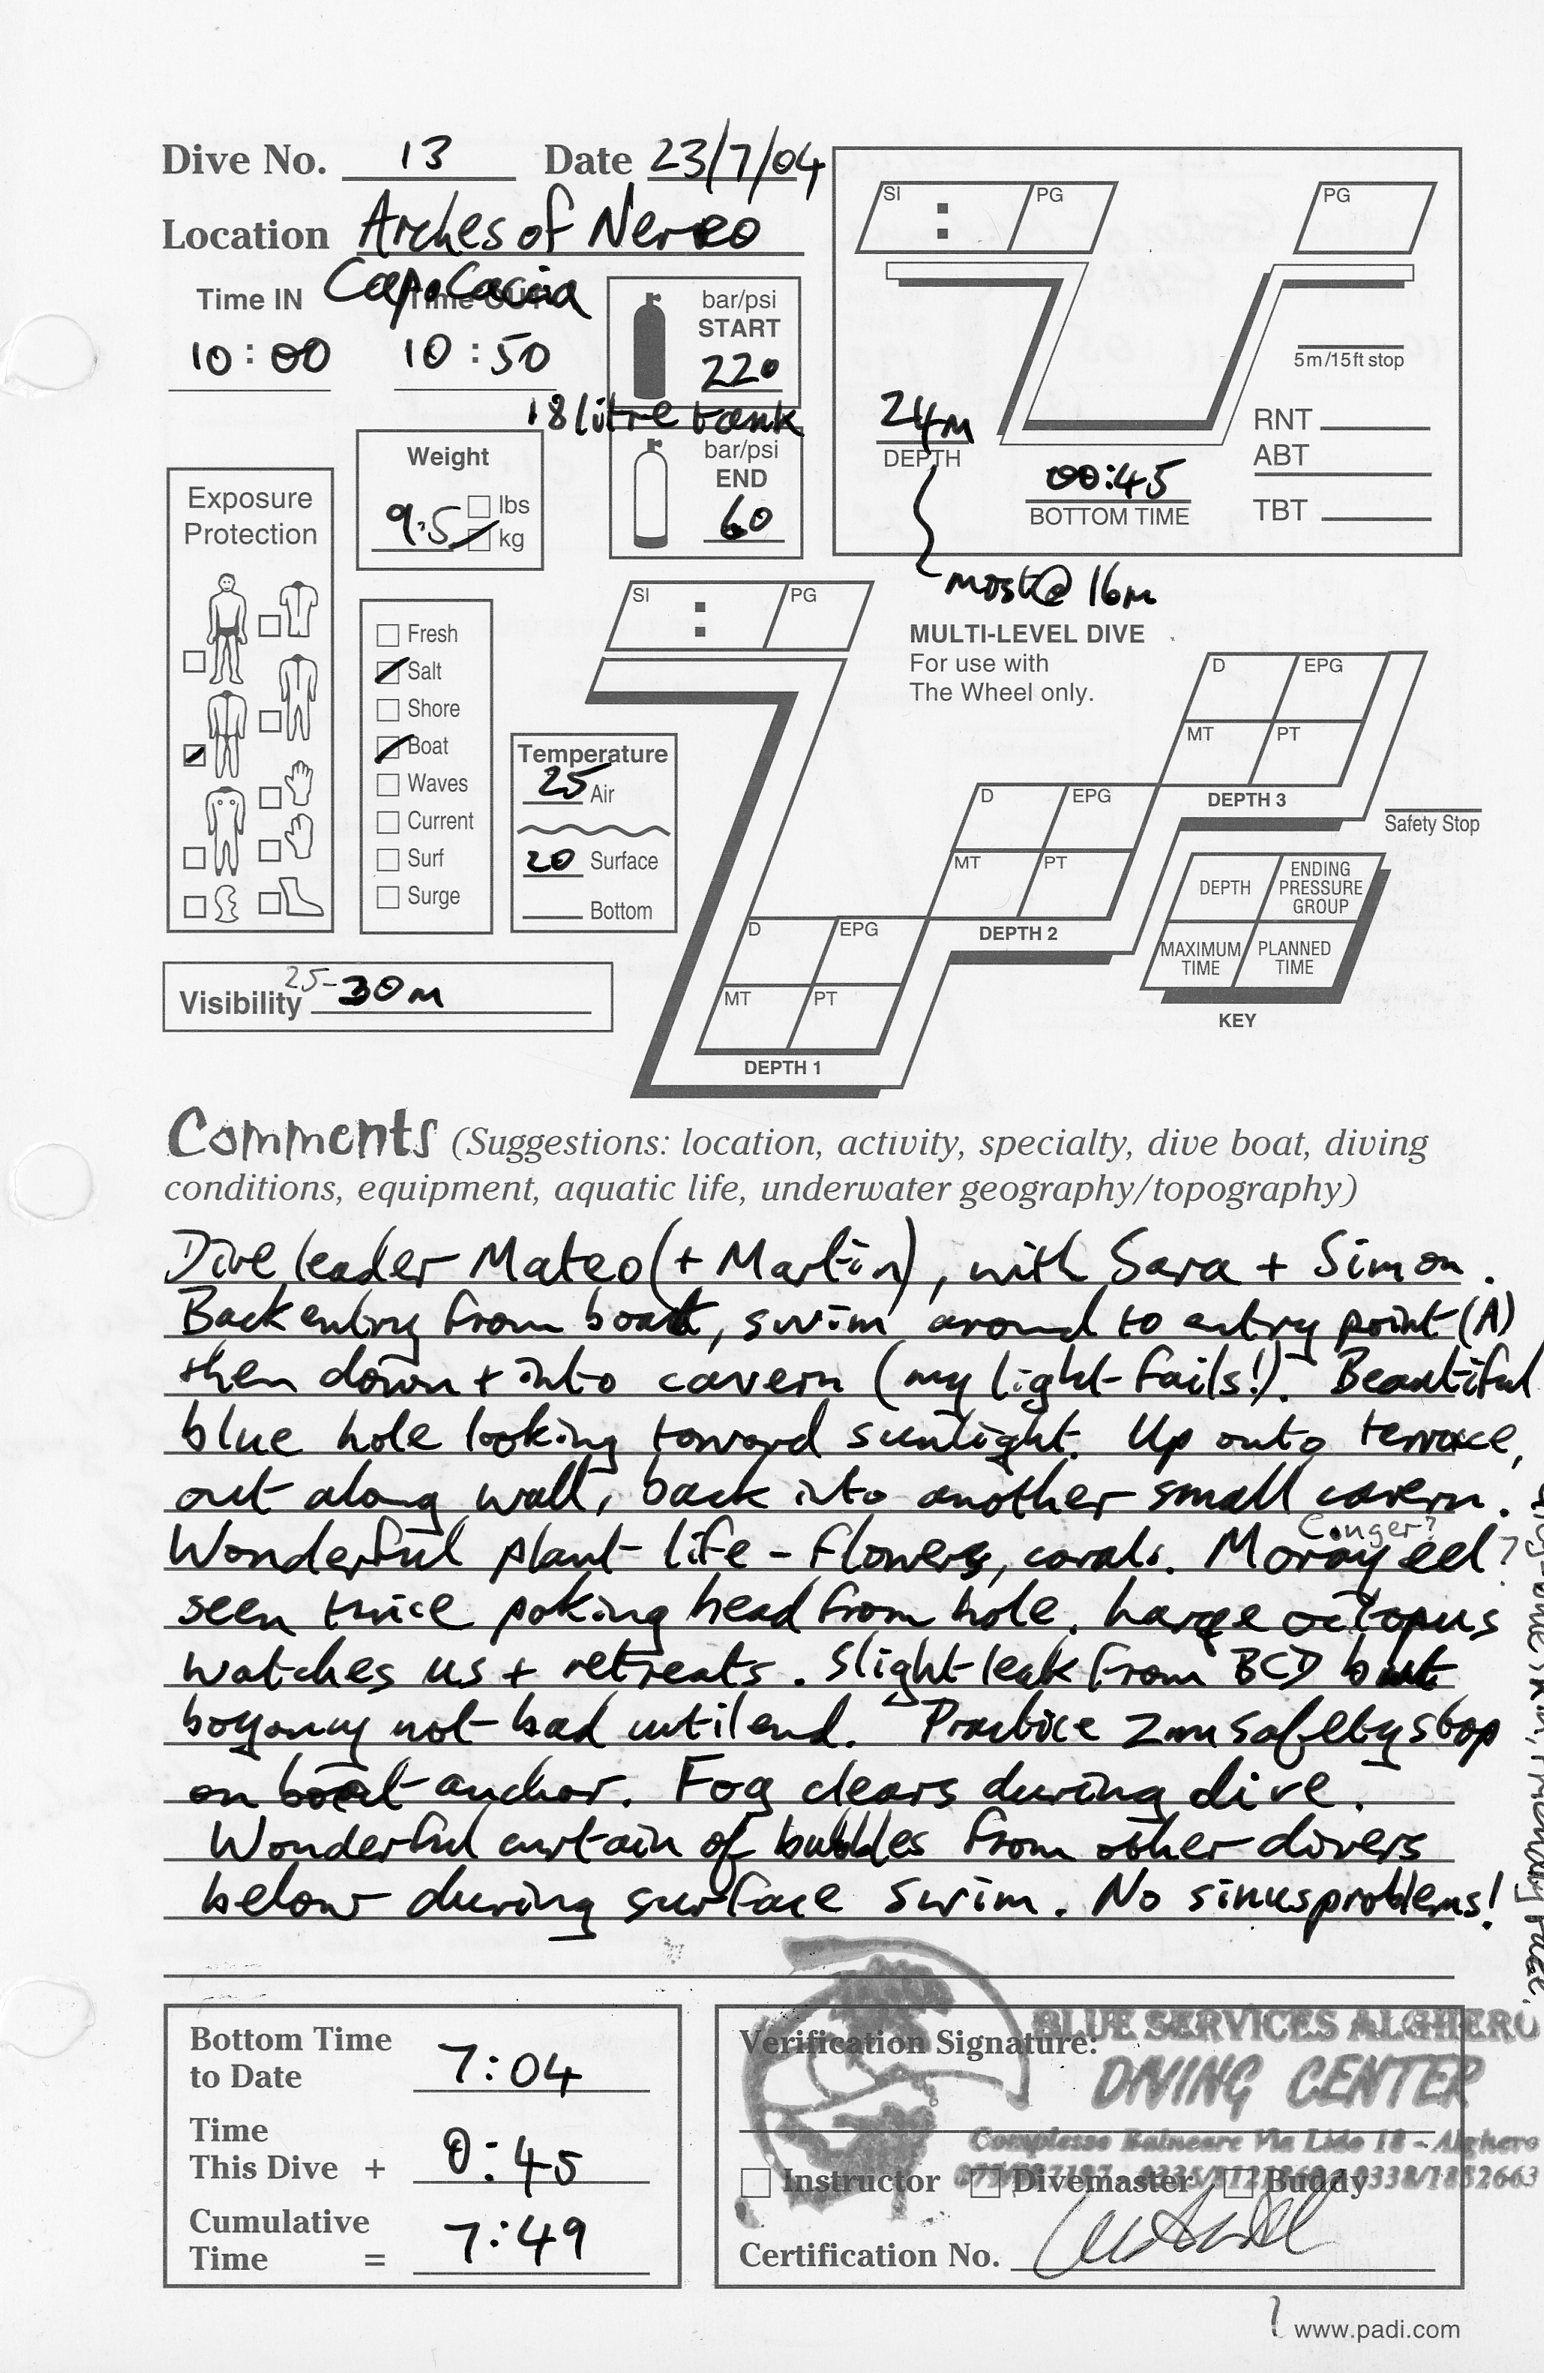 Dive No. 13 Date 23/7/04
Location Arches of Nereo
Capo Caccia
Time IN Time OUT
10:00 10:50
bar/psi
START
220
18 litre tank
bar/psi
END
60
Weight
9.5 lbs
kg
Exposure
Protection
Fresh
Salt
Shore
Boat
Waves
Current
Surf
Surge
Temperature
25 Air
20 Surface
Bottom
Visibility 25-30m
SI : PG
PG
5m/15ft stop
24m
DEPTH
most @ 16m
00:45
BOTTOM TIME
RNT
ABT
TBT
SI : PG
MULTI-LEVEL DIVE
For use with
The Wheel only.
D EPG
MT PT
DEPTH 3
D EPG
MT PT
DEPTH 2
D EPG
MT PT
DEPTH 1
Safety Stop
DEPTH ENDING PRESSURE GROUP
MAXIMUM TIME PLANNED TIME
KEY
Comments (Suggestions: location, activity, specialty, dive boat, diving
conditions, equipment, aquatic life, underwater geography/topography)
Dive leader Mateo (+ Martin), with Sara + Simon.
Back entry from boat, swim around to entry point (A)
then down + into cavern (my light fails!). Beautiful
blue hole looking toward sunlight. Up onto terrace,
out along wall, back into another small cavern.
Conger?
Wonderful plant life - flowers, corals. Moray eel?
seen twice poking head from hole. Large octopus
watches us + retreats. Slight leak from BCD but
boyancy not bad until end. Practice 2m safety stop
on boat anchor. Fog clears during dive.
Wonderful curtain of bubbles from other divers
below during surface swim. No sinus problems!
Bottom Time
to Date 7:04
Time
This Dive + 0:45
Cumulative
Time = 7:49
Verification Signature:
BLUE SERVICES ALGHERO
DIVING CENTER
Complesso Balneare Via Lido 18 - Alghero
0338/1852663
Instructor Divemaster Buddy
Certification No.
www.padi.com